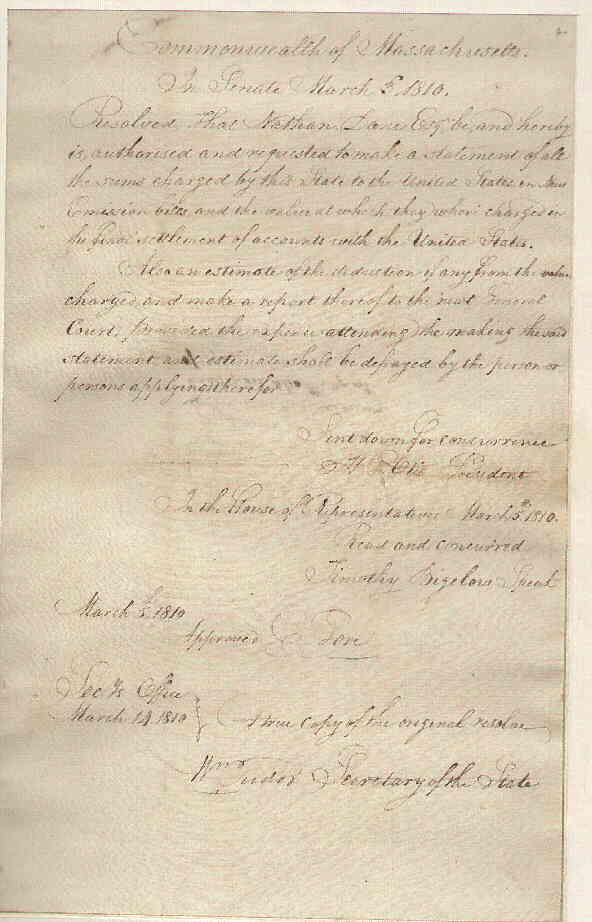 Commonwealth of Massachusetts.
In Senate March 5, 1810.
Resolved, That Nathan Dane Esqr be, and hereby
is, authorised and requested to make a statement of all
the sums charged by this State to the United States, in New
Emission bills, and the value at which they wher charged in
the final settlement of accounts with the United States.
Also an estimate of the deduction if any from the value
charged, and make a report thereof to the next General
Court, provided the expence attending the making the said
statement and estimate shall be defrayed by the person or
persons applying therefor
Sent down for concurrence
H G Otis President
In the House of Representatives March 5th 1810.
Read and concurred
Timothy Bigelow Speak
March 5 1810
Approved C Gore
Secys Office
March 14 1810 } A true copy of the original resolve
Wm Tudor Secretary of the State